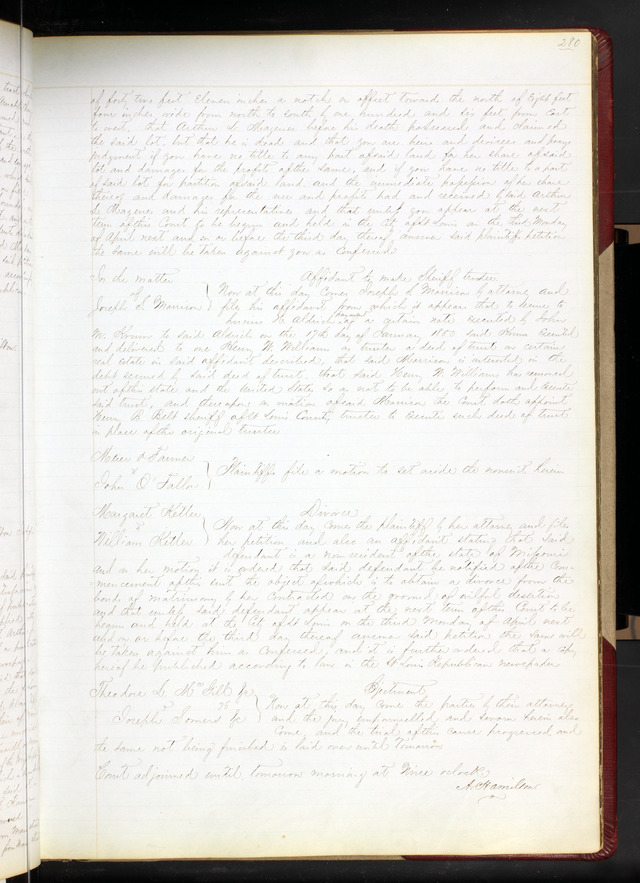 280
of forty two feet Eleven inches a notch or offset toward the north of Eight feet
four inches wide from north to south by one hundred and six feet from East
to west, that Arthur L. Magenis before his death possessed and claimed
the said lot, but that he is dead and that you are heirs and devisees and prays
Judgment if you have no title to any part of said land for her share of said
lot and damages for the profits of the same, and if you have no title to a part
of said lot for partition of said land and the immediate possession of her share
thereof and damages for the use and profits had and received by said Arthur
L. Magenis and his representatives and that unless you appear at the next
term of this Court to be begun and held in the city of St Louis on the third Monday
of April next and on or before the third day thereof answer said plaintiffs petition
the same will be taken against you as Confessed
In the matter Affidavit to make Sheriff trustee
of
Joseph S. Morrison } Now at this day Comes Joseph S Morrison by attorney and
file his affidavit from which it appears that to secure to
Aldrich a certain note executed by John
M. Krum to said Aldrich on the 17th day of January 185 said Krum Executed
and delivered to one Henry W Williams as trustee a deed of trust on certain
real estate in said affidavit described, that said Morrison is interested in the
debt secured by said deed of trust, that said Henry W. Williams has removed
out of this state and the United States so as not to be able to perform and Execute
said trust, and thereupon on motion of said Morrison the Court doth appoint
Henry B Belt sheriff of St Louis County, trustee to Execute such deed of trust
in place of the original trustee
Farmer
v } Plaintiffs file a motion to set aside the nonsuit herein
John O'Fallon
Margaret Ketler Divorce
v } Now at this day comes the plaintiff by her attorney and files
William Ketler her petition and also an affidavit stating that said
defendant is a non resident of the state of Missouri
and on her motion it is ordered that said defendant be notified of the Com-
mencement of this suit the object of which is to obtain a divorce from the
bonds of matrimony by her Contracted on the ground of wilful desertion
and that unless said defendant appear at the next term of this Court to be
begun and held at the City of St Louis on the third Monday of April next
and on or before the third day thereof answer said petition the same will
be taken against him as Confessed, and it is further ordered that a copy
hereof be published according to law in the St Louis Republican newspaper
Theodore L. McGill &c Ejectment
vs } Now at this day come the parties by their attorneys
Joseph Somers &c and the jury empannelled and sworn herein also
Come, and the trial of this cause progressed and
the same not being finished is laid over until tomorrow
Court adjourned until tomorrow morning at Nine oclock
A. Hamilton